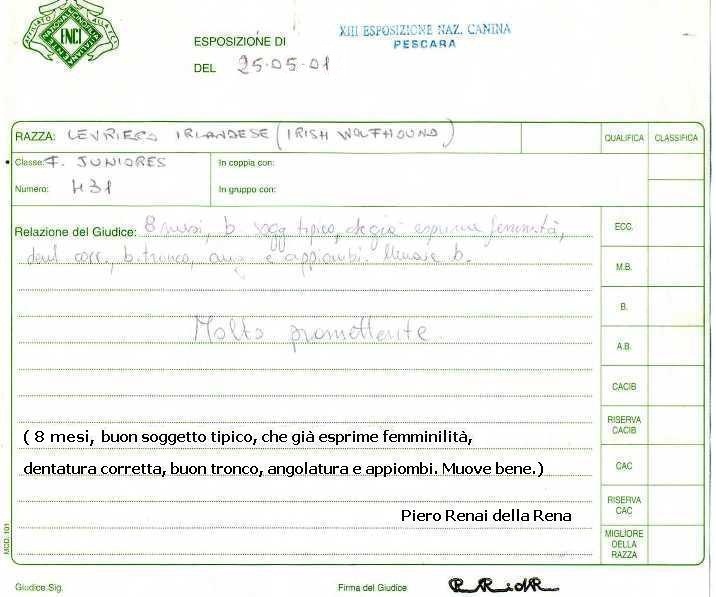 AFFILIATO ALLA F.C.I.
ENCI
ESPOSIZIONE DI
XIII ESPOSIZIONE NAZ. CANINA
PESCARA
DEL 25-05-01
RAZZA: LEVRIERO IRLANDESE (IRISH WOLFHOUND)
QUALIFICA CLASSIFICA
Classe: F. JUNIORES
In coppia con:
Numero: 431
In gruppo con:
Relazione del Giudice: 8 mesi, b. sogg tipico, che già esprime femminità,
dent corr., b. tronco, ang. e appiombi. Muove b.
Molto promettente
ECC.
M.B.
B.
A.B.
CACIB
RISERVA
CACIB
CAC
RISERVA
CAC
MIGLIORE
DELLA
RAZZA
( 8 mesi, buon soggetto tipico, che già esprime femminilità,
dentatura corretta, buon tronco, angolatura e appiombi. Muove bene.)
Piero Renai della Rena
MOD. 101
Giudice Sig.
Firma del Giudice